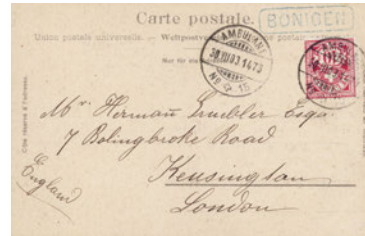 Carte postale.
BÖNIGEN
Union postale universelle. — Weltpostverein
AMBULANT
30.VIII.03.1473
Nº 15
Nur für die
Côté réservé à l'adresse.
Mr. Hermann Grubler Esqr.
7 Bolingbroke Road
Kensington
London
England